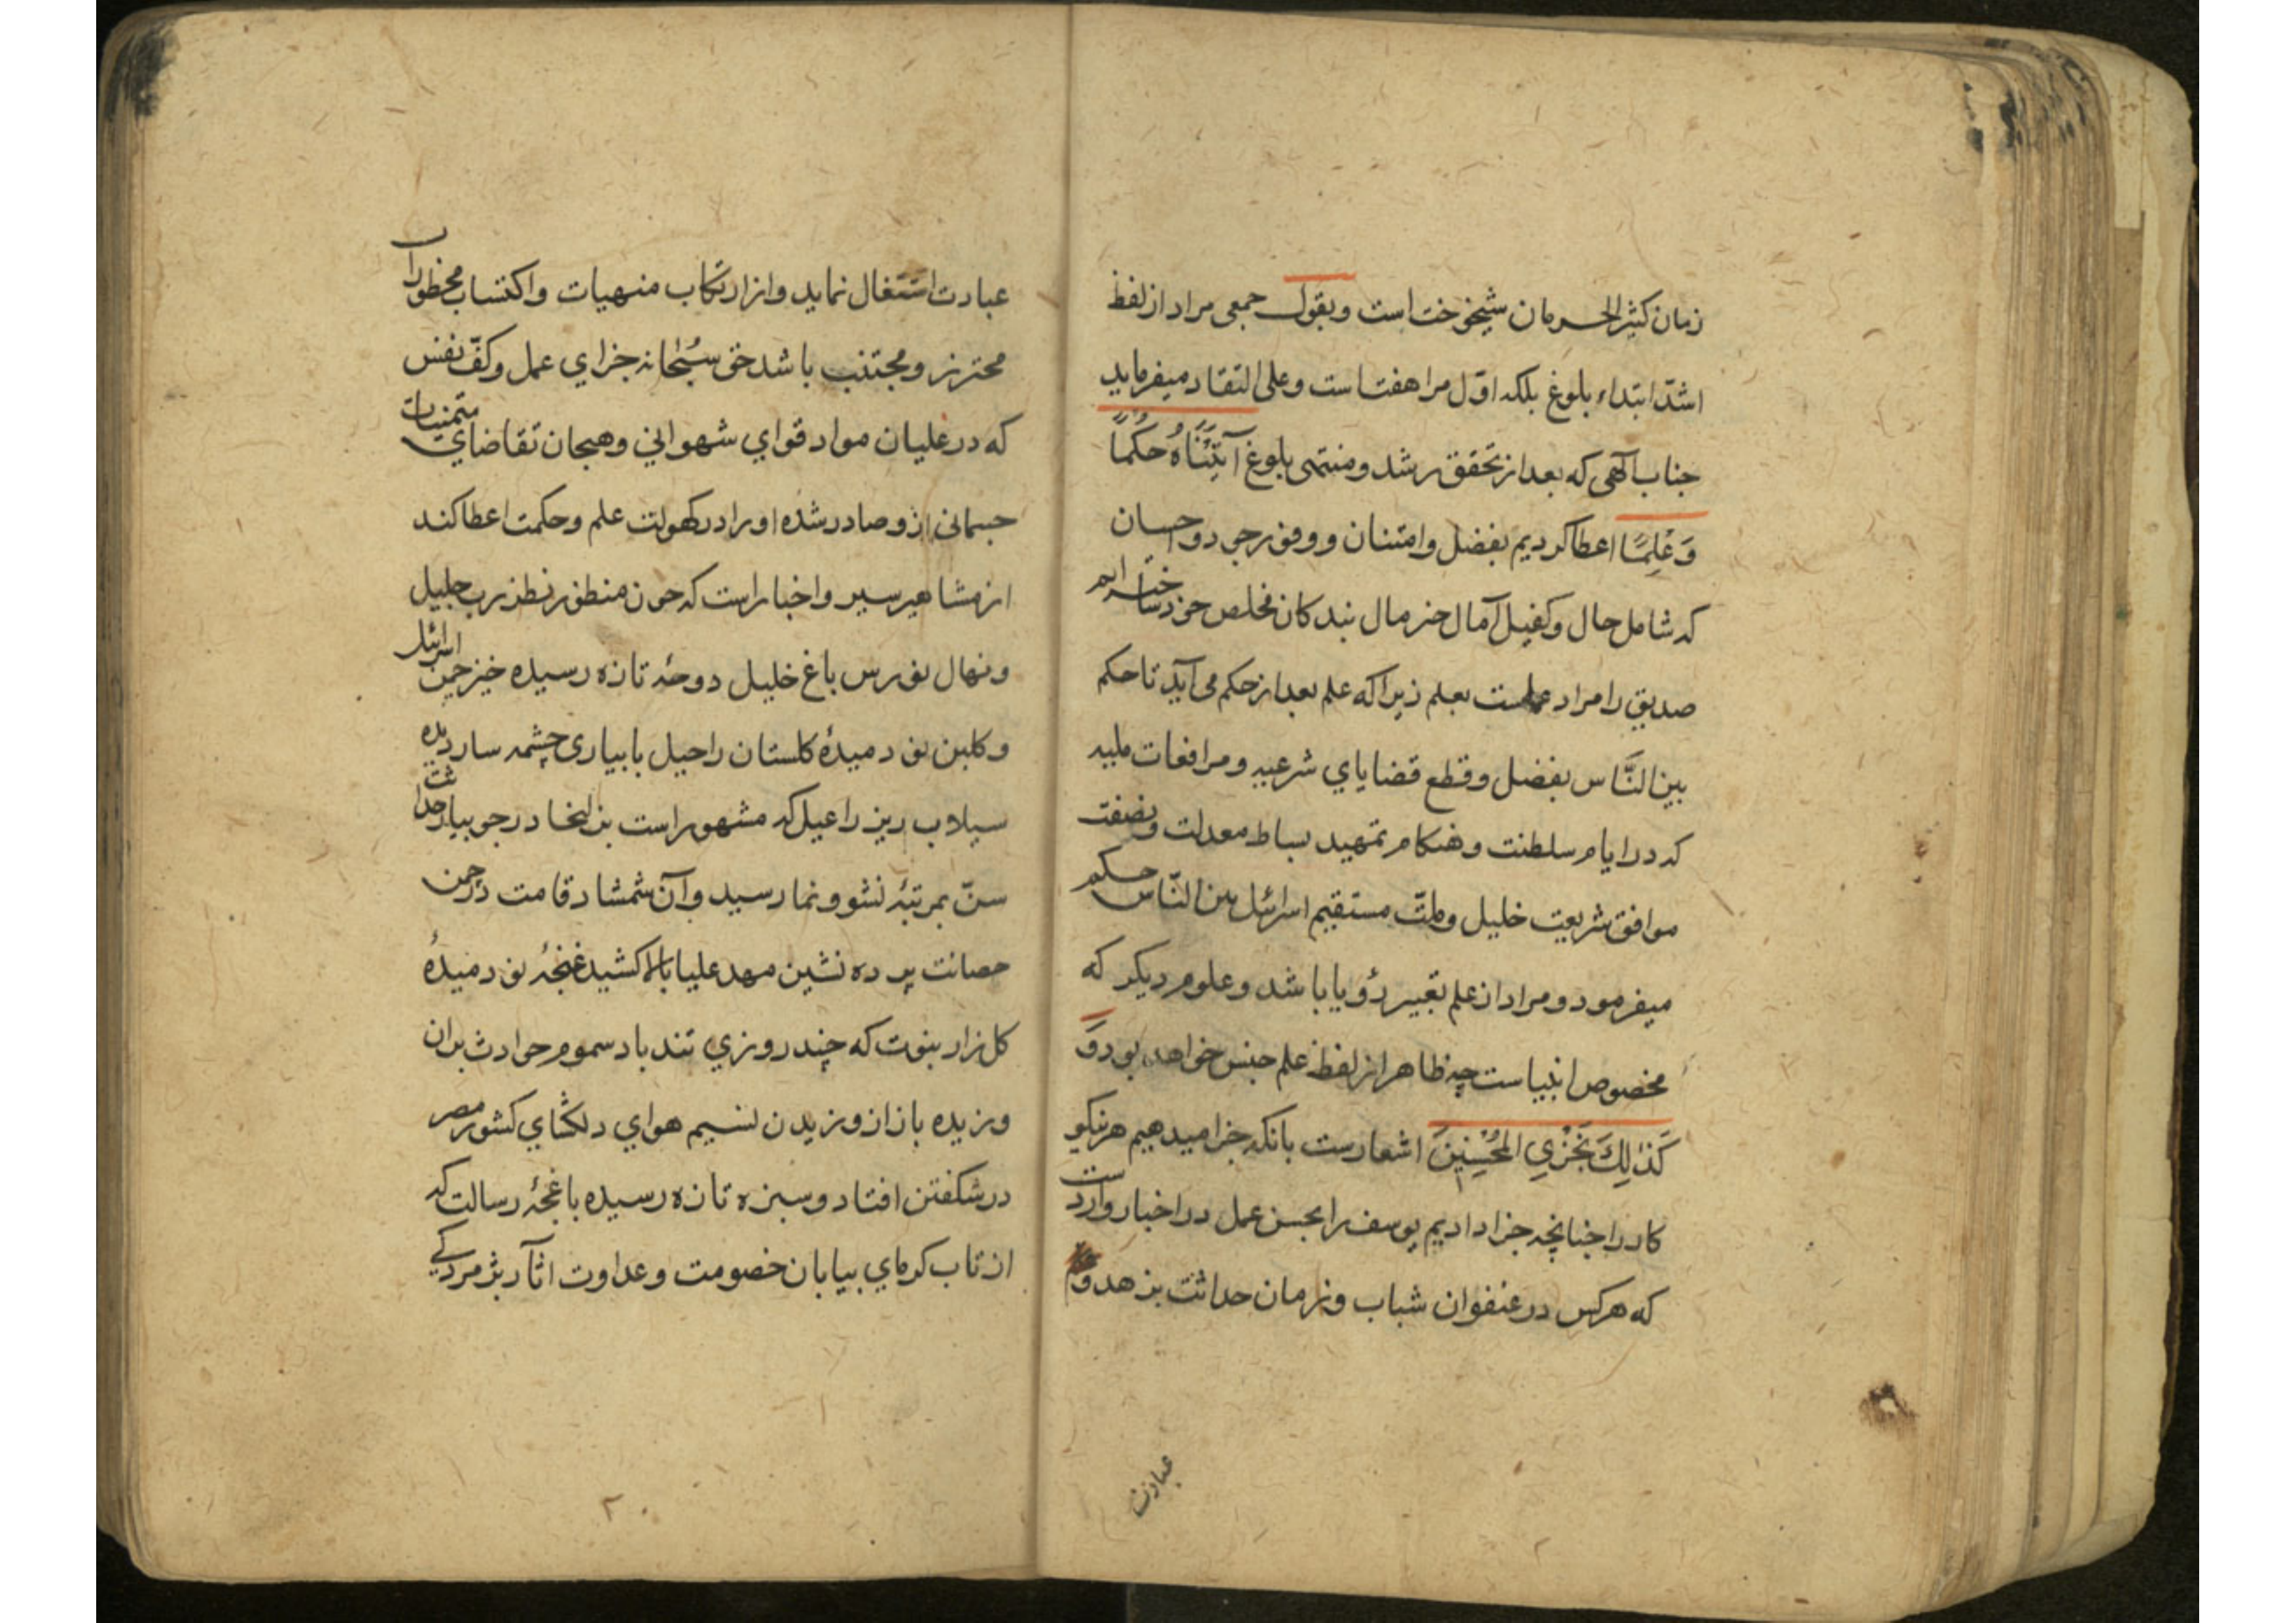 زمان کثیر الحرمان شیخوخت است وبقول جمعی مراد از لفظ
اشدّ ابتداء بلوغ بلکه اوّل مراهقتست وعلی التقادیر میفرماید
جناب آلهی که بعد از تحقق رشد ومنتهی بلوغ آتَیْنَاهُ حُکْمًا
وَعِلْمًا اعطا کردیم بفضل وامتنان ووفور جود واحسان
که شامل حال وکفیل آمال بندکان مخلص خود ساخته ایم
صدیق را مراد عملست بعلم زیرا که علم بعد از حکم می آید تا حکم
بین النَّاس بفضل وقطع قضایای شرعیه ومرافعات ملیه
که در ایام سلطنت وهنکام تمهید بساط معدلت ونصفت
موافق شریعت خلیل وملّت مستقیم اسرائیل بین النّاس حکم
میفرمود ومراد از علم تعبیر رؤیا باشد وعلوم دیکر که
مخصوص انبیاست چه ظاهر از لفظ علم جنس خواهد بود وَ
کَذٰلِكَ نَجْزِي الْمُحْسِنِینَ اشعارست بانکه جزا میدهیم هر نیکو
کار را چنانچه جزا دادیم یوسف را بحسن عمل در اخبار واردست
که هرکس در عنفوان شباب وزمان حداثت بزهد و
عبادت
عبادت اشتغال نماید واز ارتکاب منهیات واکتساب محظورات
محترز ومجتنب باشد حق سُبْحانه جزاي عمل وکفّ نفس
که در غلیان مواد قوای شهوانی وهیجان تقاضاي متمنیات
جسمانی ازو صادر شده او را در کهولت علم وحکمت اعطا کند
از مشاهیر سیر واخبار است که چون منظور نظر رب جلیل
ونهال نورس باغ خلیل دوحهٔ تازه رسیده خیز چمن اسرائیل
وکلبن نو دمیدهٔ کلستان راحیل بابیاری چشمه سار دیده
سیلاب ریز راعیل که مشهور است بزلیخا در جویبار حداثت
سنّ بمرتبهٔ نشو ونما رسید وآن شمشاد قامت در چمن
حصانت پرده نشین مهد علیا بالا کشید غنچهٔ نو دمیدهٔ
کلزار نبوت که چند روزي تند باد سموم حوادث بران
وزیده باز از وزیدن نسیم هوای دلکشاي کشور مصر
در شکفتن افتاد وسبزه تازه رسیده باغچهٔ رسالت که
از تاب کرماي بیابان خصومت وعداوت اثار پژمردکے
۲۰